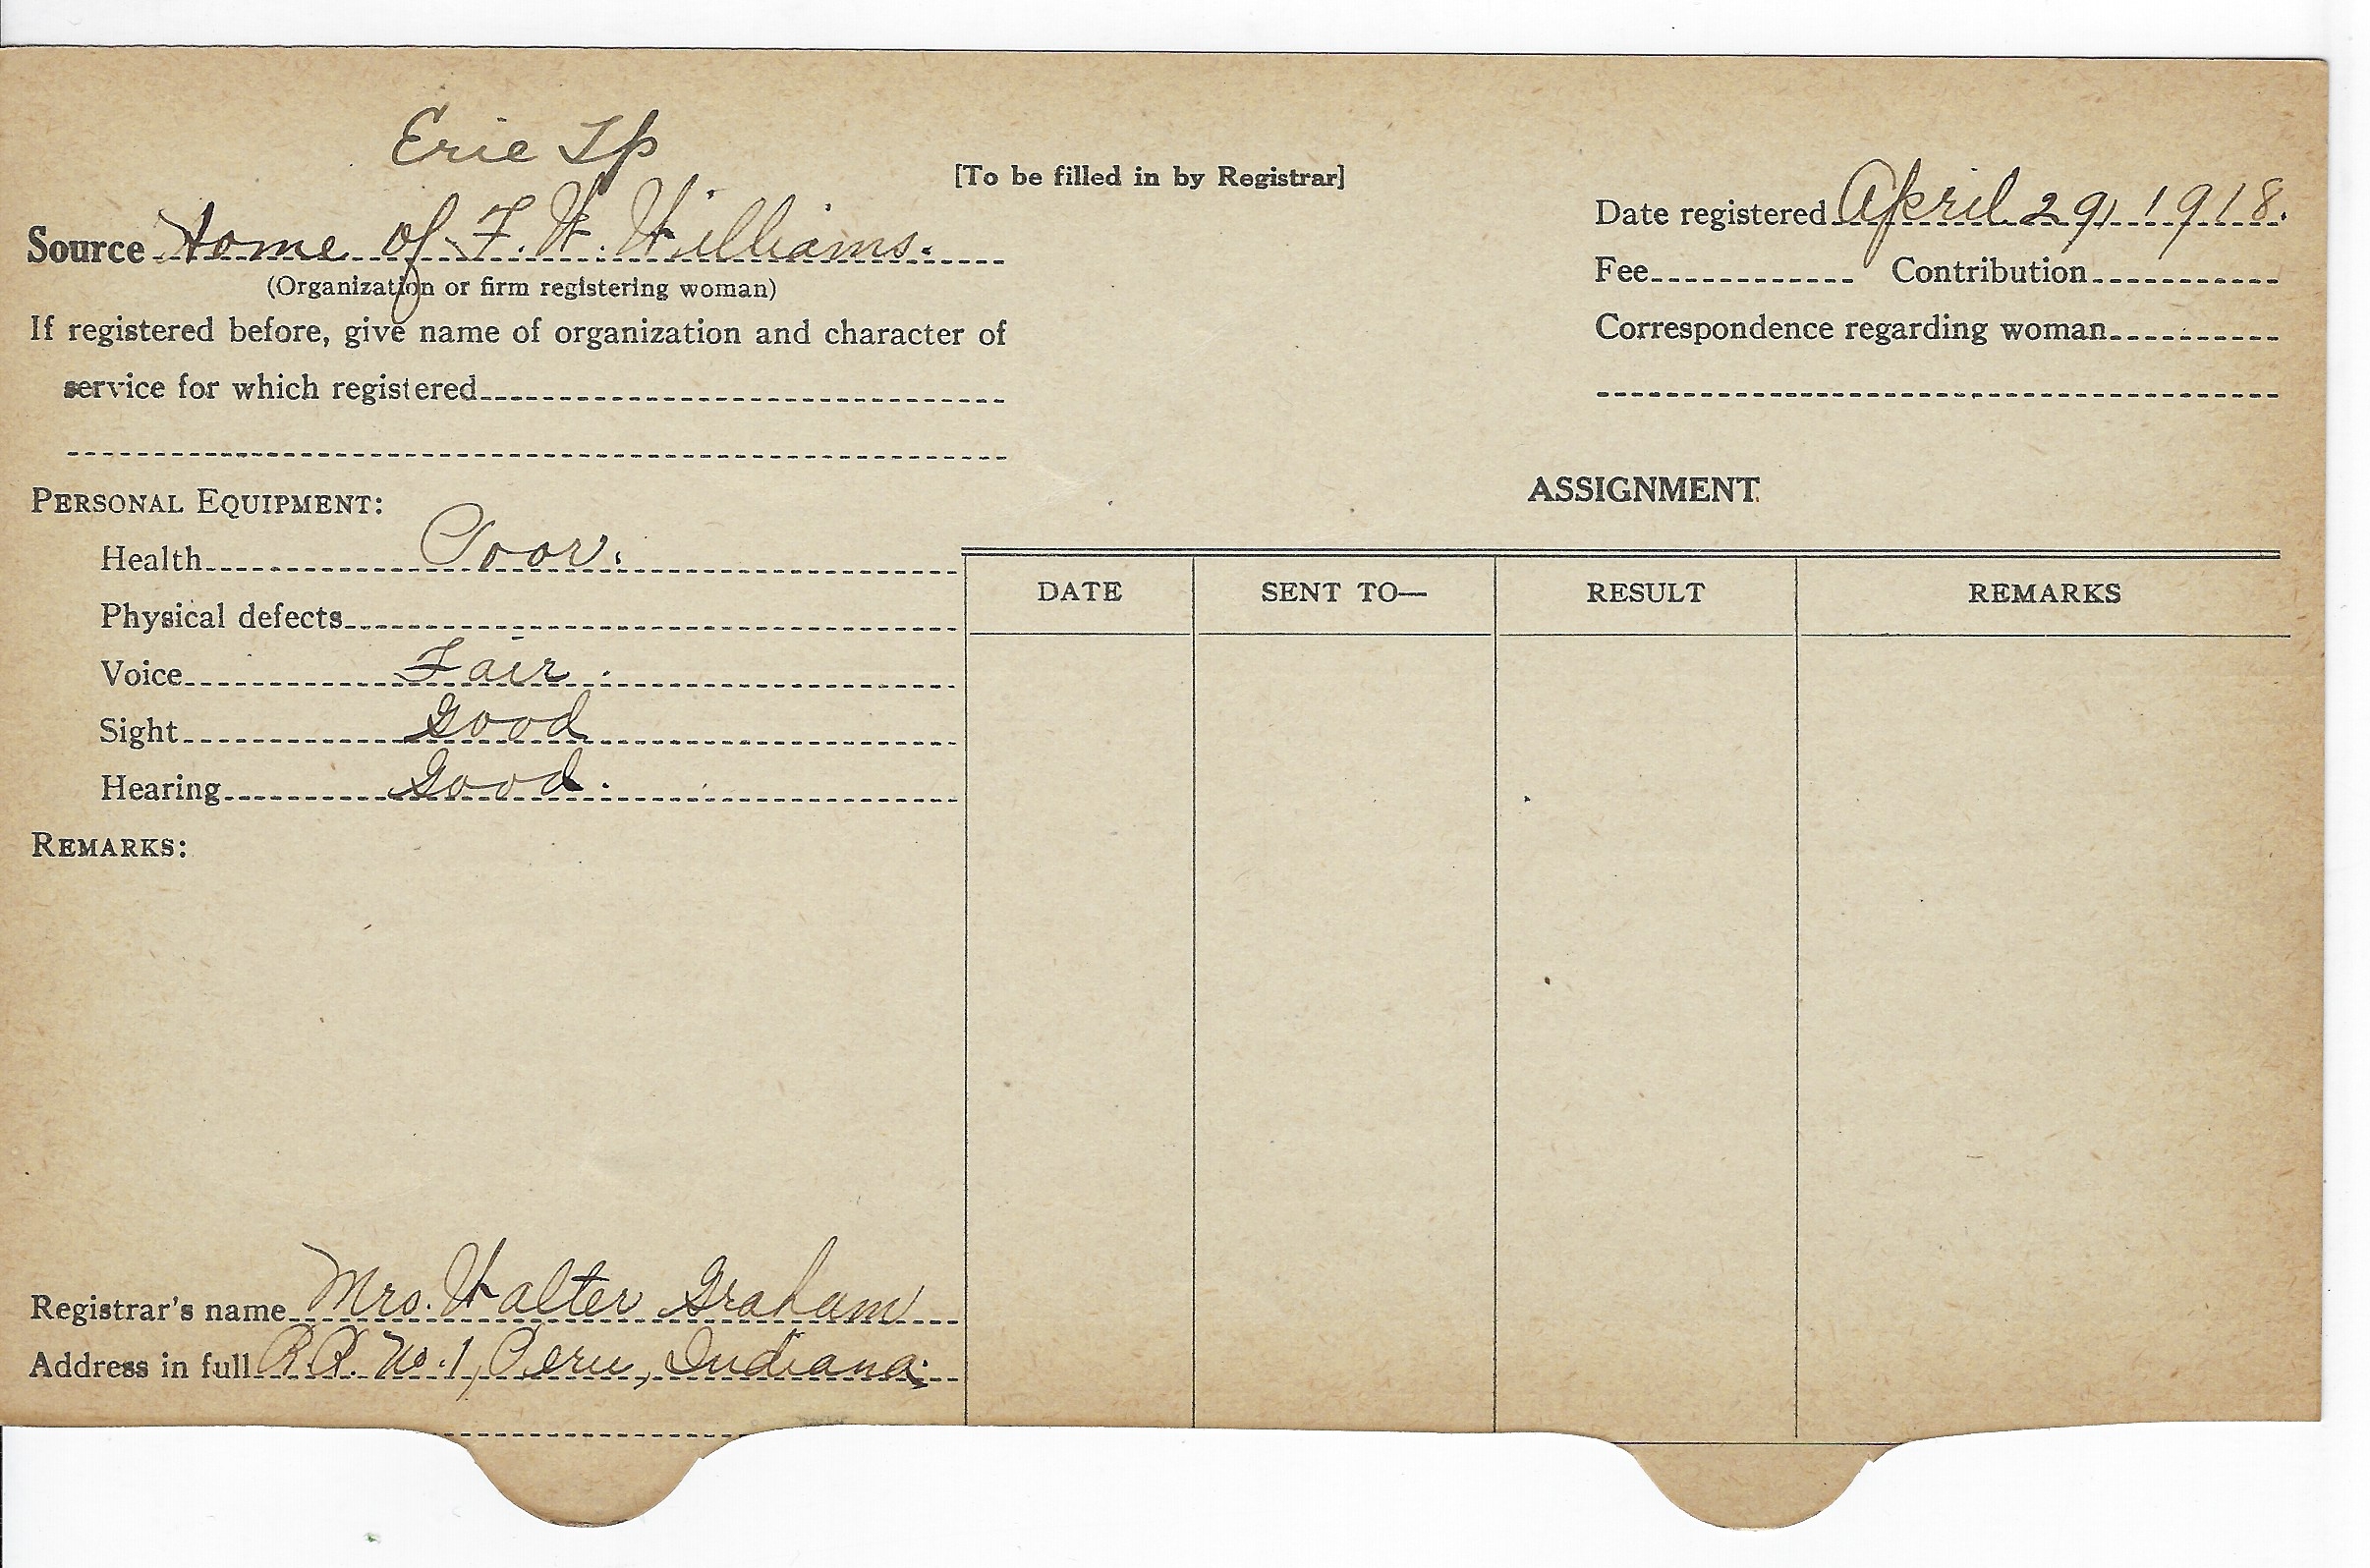 Erie Tp
[To be filled in by Registrar]
Source Home of F. W. Williams.
(Organization or firm registering woman)
If registered before, give name of organization and character of
service for which registered
Date registered April 29, 1918.
Fee Contribution
Correspondence regarding woman
PERSONAL EQUIPMENT:
Health Poor.
Physical defects
Voice Fair.
Sight Good
Hearing Good.
REMARKS:
Registrar's name Mrs. Walter Graham
Address in full R.R. No. 1, Peru, Indiana.
ASSIGNMENT
DATE SENT TO— RESULT REMARKS